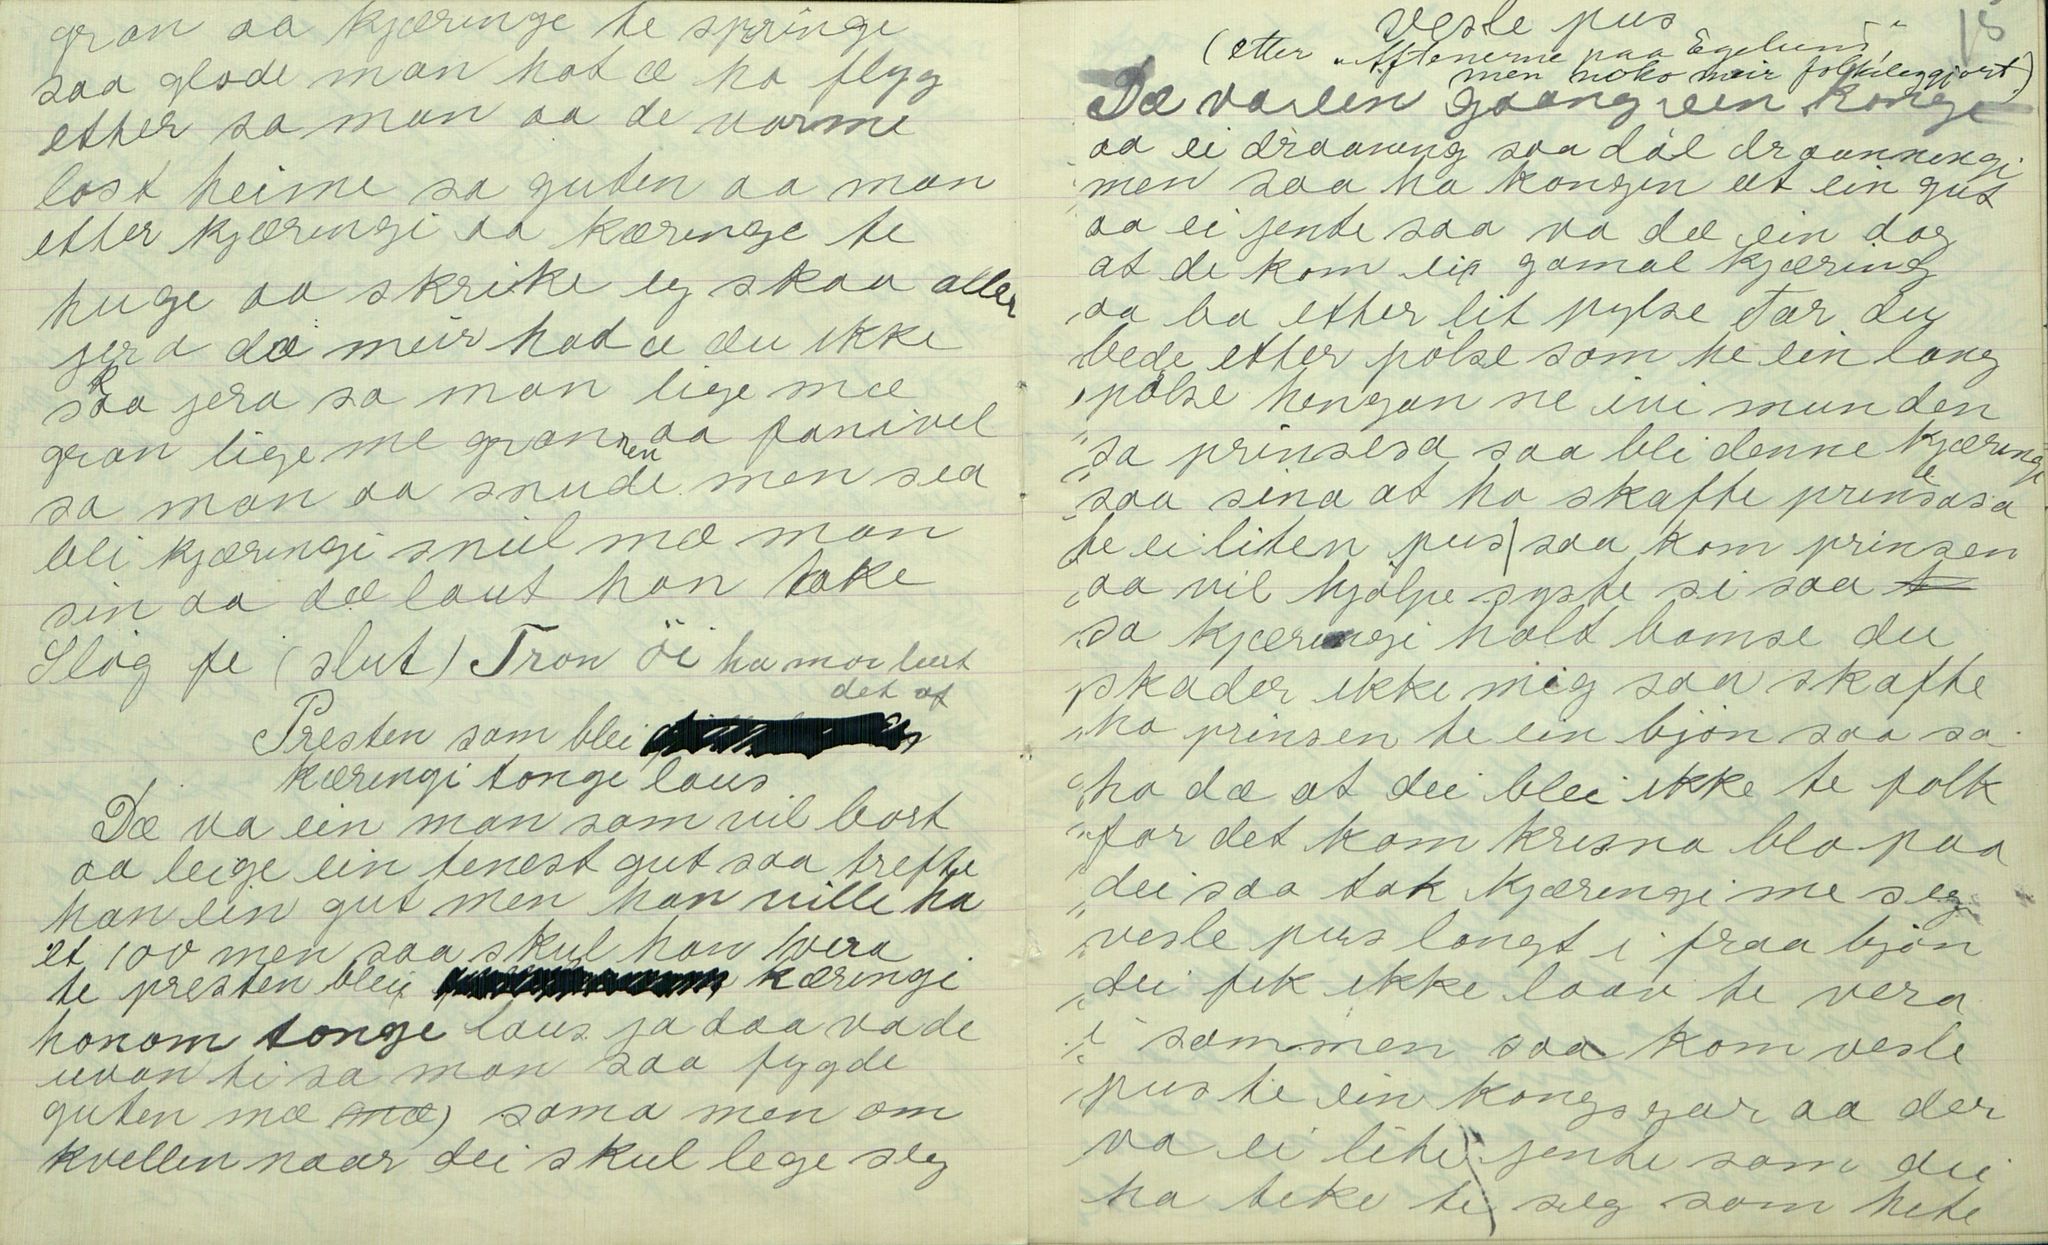 gran aa kjæringe te springe
saa glode man hot æ ho flyg
etter sa man aa de varme
løst heime sa guten aa man
etter kjæringi aa kæringe te
huge aa skrike eg skaa aller
jera dæ meir hot æ du ikke
skaa jera sa man lige mæ
gran lige me grannen aa fanivel
sa man aa snude men sea
bli kjæringi sniil mæ man
sin aa dæ laut han take
Slóg te (slut) Tron öi ha mor lært
det af
Presten som blei
kæringi tonge laus
Dæ va ein man som vil bort
aa leige ein tenest gut saa trefte
han ein gut men han ville ha
et 100 men saa skul han vera
te presten blei kæringi
honom tonge laus ja daa va de
uvan ti sa man saa fygde
guten mæ sama men om
kvellen naar dei skul lege seg
15
Vesle pus
(etter "Aftenerne paa Egelund",
men noko meir folkeleggjort)
Dæ va ein gaang ein konge
aa ei draaning saa dól draanningi
men saa ha kongin æt ein gut
aa ei jente saa va dæ ein dag
at de kom ein gamal kjæring
aa ba etter lit pylse Tør du
bede etter pölse som he ein lang
pölse hengan ne ivi munden
sa prinsesa saa bli denne kjæringe
saa sina at ho skafte prinsesa
te ei liten pus saa kom prinsen
aa vil hjölpe syste si saa
sa kjæringi holt bamse du
skader ikke mig saa skafte
ho prinsen te ein bjön saa sa
ho dæ at dei blei ikke te folk
for det kom kresna blo paa
dei saa tok kjæringi me seg
vesle pus langt i fraa bjön
dei fek ikke laav te vera
i sammen saa kom vesle
pus te ein kongsgar aa der
va ei lite jente som dei
ha teke te seg som hete